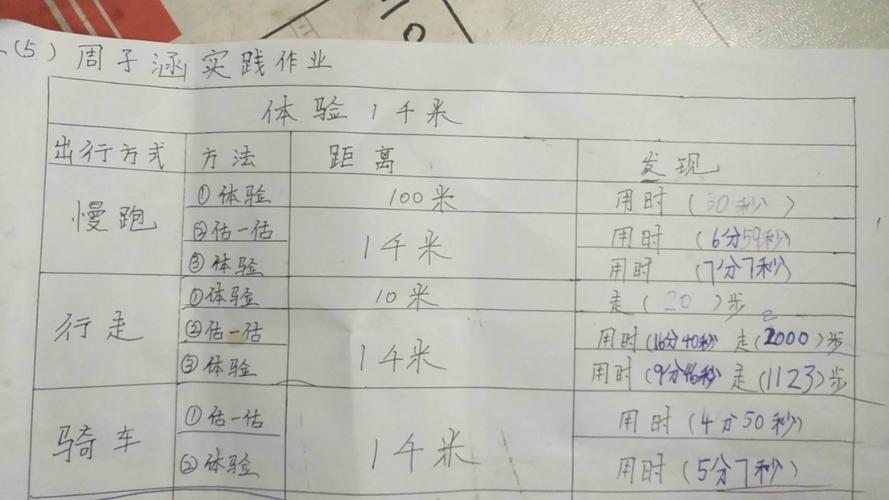 (5) 周子涵实践作业
体验1千米
出行方式 方法 距离 发现
慢跑 ①体验 100米 用时(30秒)
②估一估 1千米 用时(6分59秒)
③体验 用时(7分7秒)
行走 ①体验 10米 走(20)步
②估一估 1千米 用时(16分40秒) 走(2000)步
③体验 用时(9分46秒) 走(1123)步
骑车 ①估一估 1千米 用时(4分50秒)
②体验 用时(5分7秒)